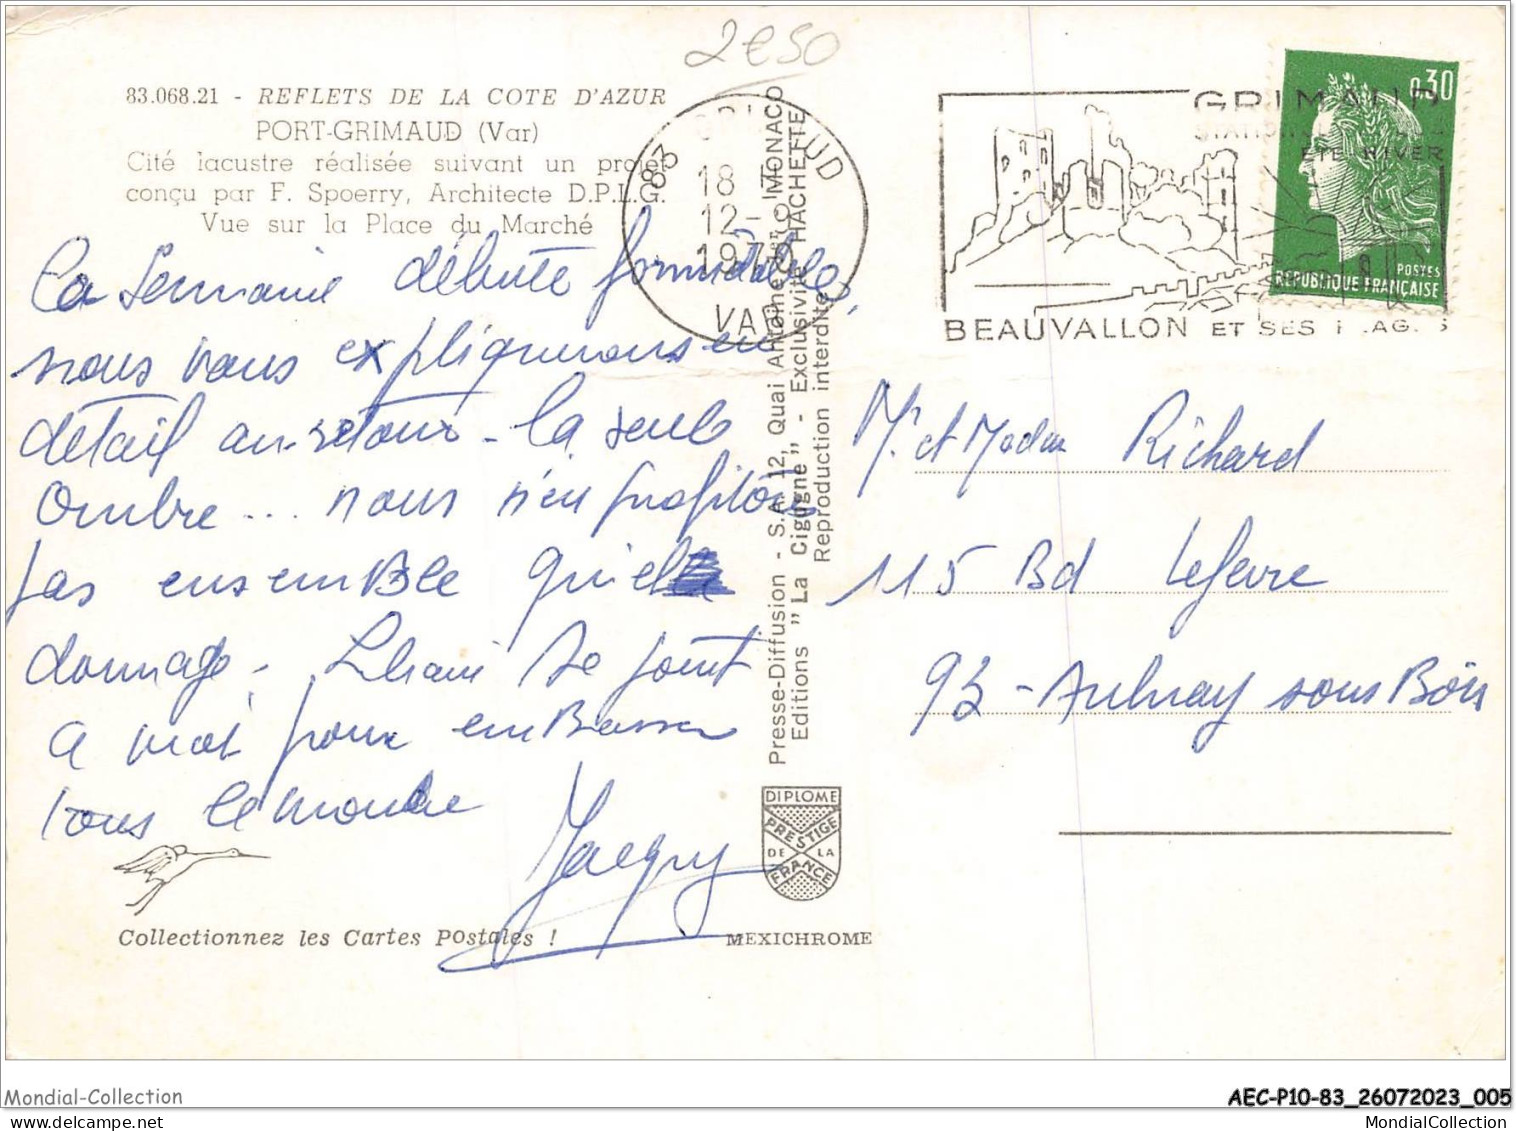 2€50
83.068.21 - REFLETS DE LA COTE D'AZUR
PORT-GRIMAUD (Var)
Cité lacustre réalisée suivant un projet
conçu par F. Spoerry, Architecte D.P.L.G.
Vue sur la Place du Marché
La semaine débute formidable,
nous vous expliquerons en
détail au retour - la seule
ombre ... nous n'en profitons
pas ensemble quel
dommage - se joint
a moi pour embrasser
tous le monde
Jacquy
Collectionnez les Cartes Postales !
MEXICHROME
83 GRIMAUD
18 H
12-9
197
VAR
Presse-Diffusion - S.A. 12, Quai Antoine 1er MONACO
Editions "La Cigogne" - Exclusivité HACHETTE
Reproduction interdite
DIPLOME
PRESTIGE
DE LA
FRANCE
GRIMAUD
ETE HIVER
BEAUVALLON ET SES PLAGES
0,30
POSTES
REPUBLIQUE FRANÇAISE
Mr et Madame Richard
115 Bd Lefevre
93 - Aulnay sous Bois
Mondial-Collection
AEC-P10-83_26072023_005
MondialCollection